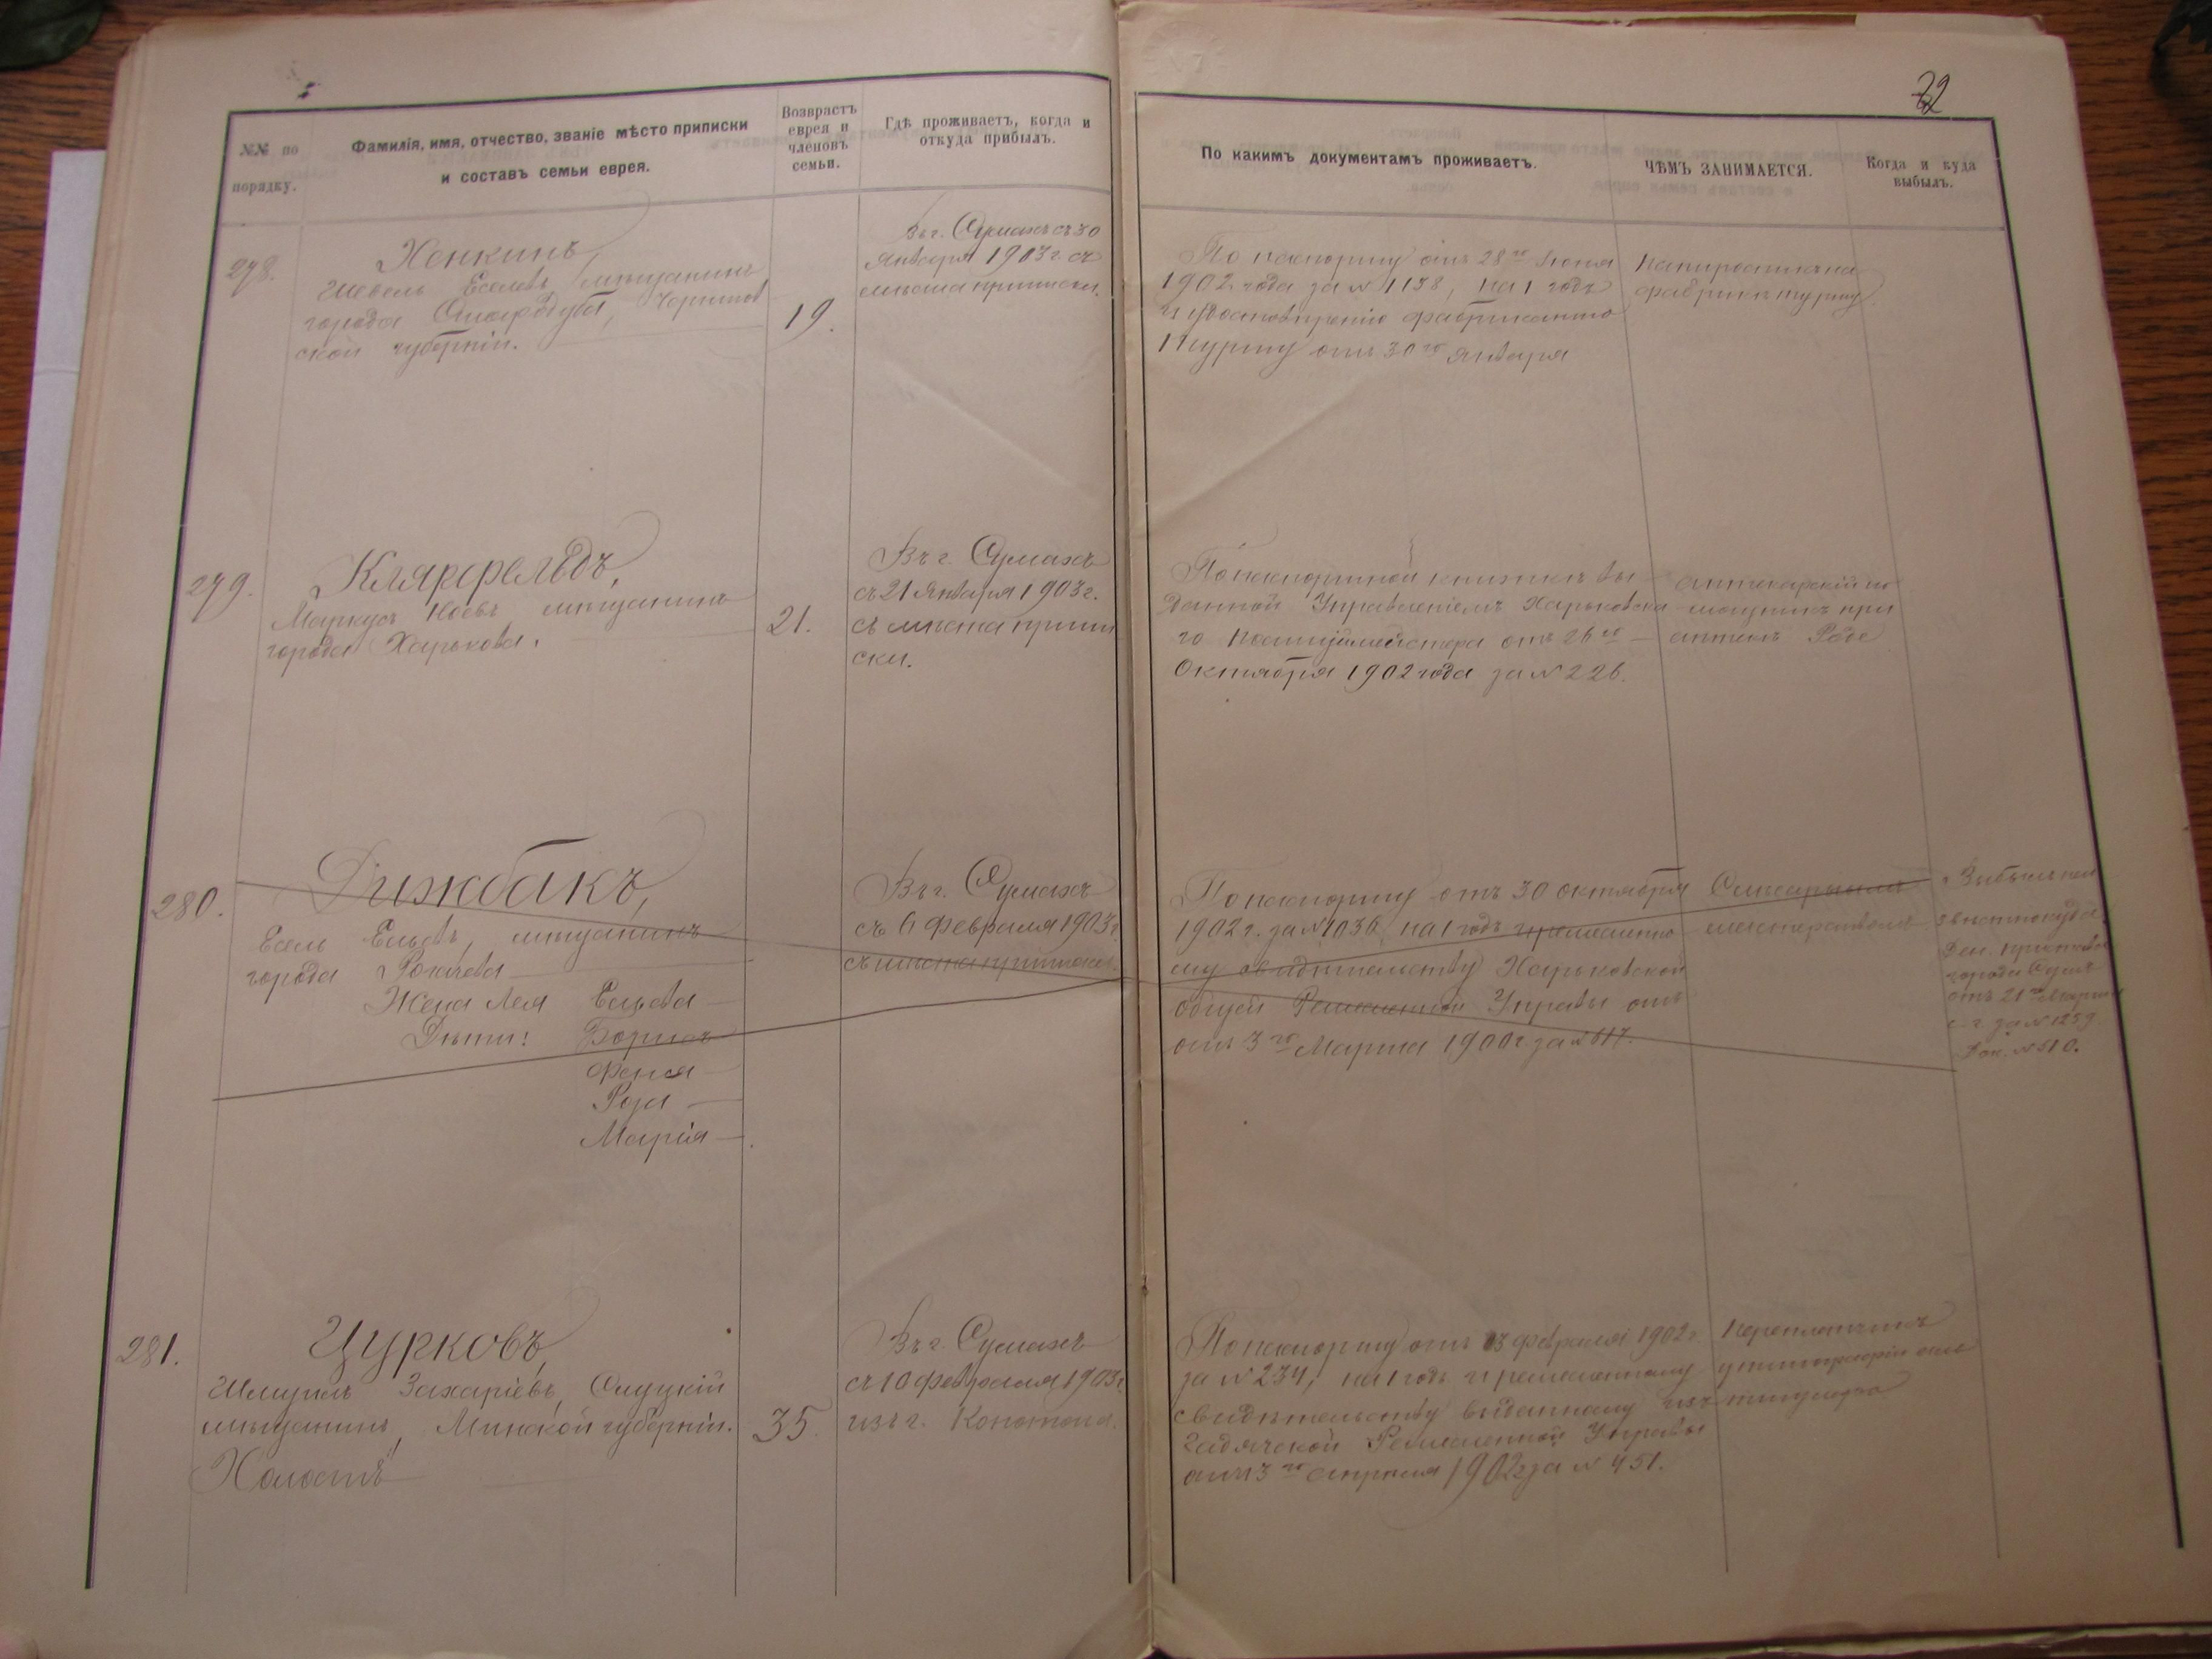 72
№№ по порядку.
Фамилія, имя, отчество, званіе мѣсто приписки
и составъ семьи еврея.
Возврастъ
еврея и
членовъ
семьи.
Гдѣ проживаетъ, когда и
откуда прибылъ.
По какимъ документамъ проживаетъ.
ЧѢМЪ ЗАНИМАЕТСЯ.
Когда и куда
выбылъ.
278.
Хенкинъ,
Шевель Еселевъ, мѣщанинъ
города Стародуба, Чернигов
ской губерніи.
19.
Въ г. Сумахъ съ 30
Января 1903 г. съ
мѣста приписки.
По паспорту отъ 28го Іюня
1902 года за № 1138, на 1 годъ
и удостовѣренію фабриканта
отъ 30го Января
279.
Клярфельдъ,
Маркусъ Ноевъ мѣщанинъ
города Харькова.
21.
Въ г. Сумахъ
съ 21 Января 1903 г.
съ мѣста припи
ски.
По паспортной книжкѣ вы
данной Управленіемъ Харьковска
го Полицеймейстера отъ 26го
Октября 1902 года за № 226.
аптекарскій по
мощникъ при
аптекѣ Роде
280.
Рижбакъ,
Есель Ельевъ, мѣщанинъ
города Рогачева
Жена Лея
Дѣти: Борисъ
Феня
Роза
Марія
Въ г. Сумахъ
съ 6 Февраля 1903 г.
съ мѣста приписки.
По паспорту отъ 30 Октября
1902 г. за № 1036, на 1 годъ и ремесленно
му свидѣтельству Харьковской
общей Ремесленной Управы отъ
отъ 3го Марта 1900 г. за № 617.
Столярнымъ
мастерствомъ
Выбылъ неи
звѣстно куда.
Дон. Пристава
города Сумъ
отъ 21го Марта
с. г. за № 1259.
Док. № 510.
281.
Цурковъ,
Шмуилъ Захаріевъ, Слуцкій
мѣщанинъ, Минской губерніи.
Холостъ
35.
Въ г. Сумахъ
съ 10 Февраля 1903 г.
изъ г. Конотопа.
По паспорту отъ 13 Февраля 1902 г.
за № 234, на 1 годъ и ремесленному
свидѣтельству выданному изъ
Гадячской Ремесленной Управы
отъ 3го Апрѣля 1902 г. за № 451.
Переплетчикъ